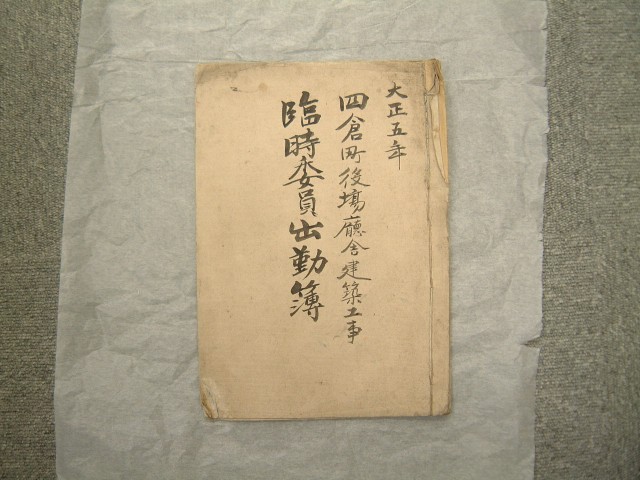 大正五年
四倉町役場廳舎建築工事
臨時委員出勤簿